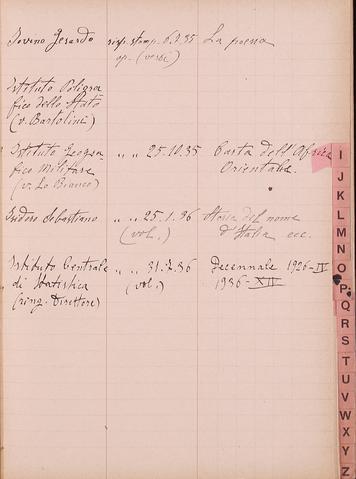 Iovino Gerardo ring. stamp. 6.9.35 La poesia
op. (versi)
Istituto Poligra
fico dello Stato
(v. Bartolini)
Istituto Geogra- " " 25.10.35 Carta dell'Africa
fico Militare Orientale.
(v. Lo Bianco)
Isidoro Sebastiano " " 25.1.36 Storia del nome
(vol.) d'Italia ecc.
Istituto Centrale " " 31.7.36 Decennale 1926-IV
di Statistica (vol.) 1936-XII
(ring. Direttore)
I
J
K
L
M
N
O
P
Q
R
S
T
U
V
W
X
Y
Z